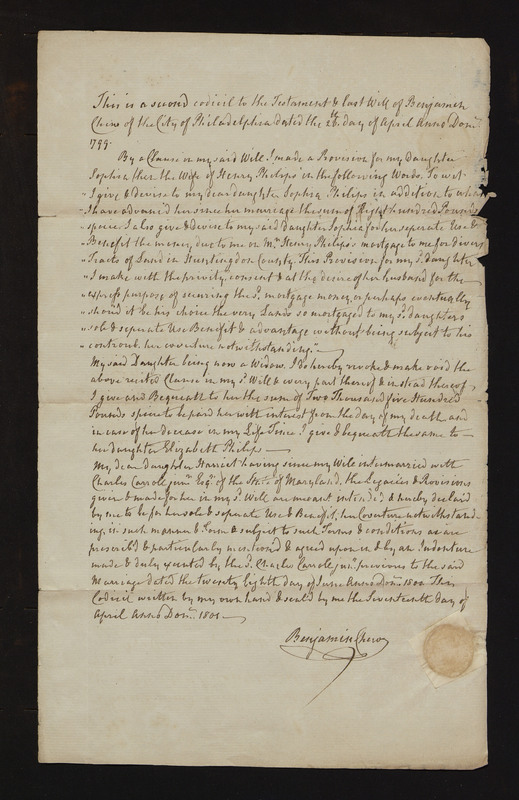 This is a second codicil to the Testament & last Will of Benjamin
Chew of the City of Philadelphia dated the 26th. day of April Anno Dom.
1799.
By a Clause in my said Will I made a Provision for my Daughter
Sophia then the Wife of Henry Philips in the following Words. To wit
"I give & devise to my dear daughter Sophia Philips in addition to what
"I have advanc'd her since her marriage the sum of Eight hundred Pounds
"specie. I also give & devise to my said Daughter Sophia for her separate Use &
"Benefit the money due to me on Mr. Henry Philips's mortgage to me for divers
"Tracts of Land in Huntingdon County. This Provision for my sd. daughter
"I make with the privity consent & at the desire of her husband for the
"express purpose of securing the sd. mortgage money or perhaps eventually
"shou'd it be his choice the very Lands so mortgaged to my sd. daughters
"sole & separate Use Benefit & advantage without being subject to his
"controul, her coverture notwithstanding."
My said Daughter being now a Widow, I do hereby revoke & make void the
above recited Clause in my sd. Will & every part thereof & instead thereof
I give and Bequeath to her the sum of Two Thousand five Hundred
Pounds specie to be paid her with interest from the day of my death and
in case of her decease in my Life Time I give & bequeath the same to
her daughter Elizabeth Philips
My dear daughter Harriet having since my Will intermarried with
Charles Carroll junr. Esqr. of the State of Maryland, the Legacies & Provisions
given & made for her in my sd. Will are meant intended & hereby declared
by me to be for her sole & separate Use & Benefit, her Coverture notwithstand-
ing, in such manner & Form & subject to such Terms & conditions as are
prescrib'd & particularly mentioned & agreed upon in & by an Indenture
made & duly executed by the sd. Charles Carroll junr. previous to the said
Marriage dated the twenty eighth day of June Anno Dom. 1800. This
Codicil written by my own hand & seal'd by me the Seventeenth day of
April Anno Dom. 1801
Benjamin Chew